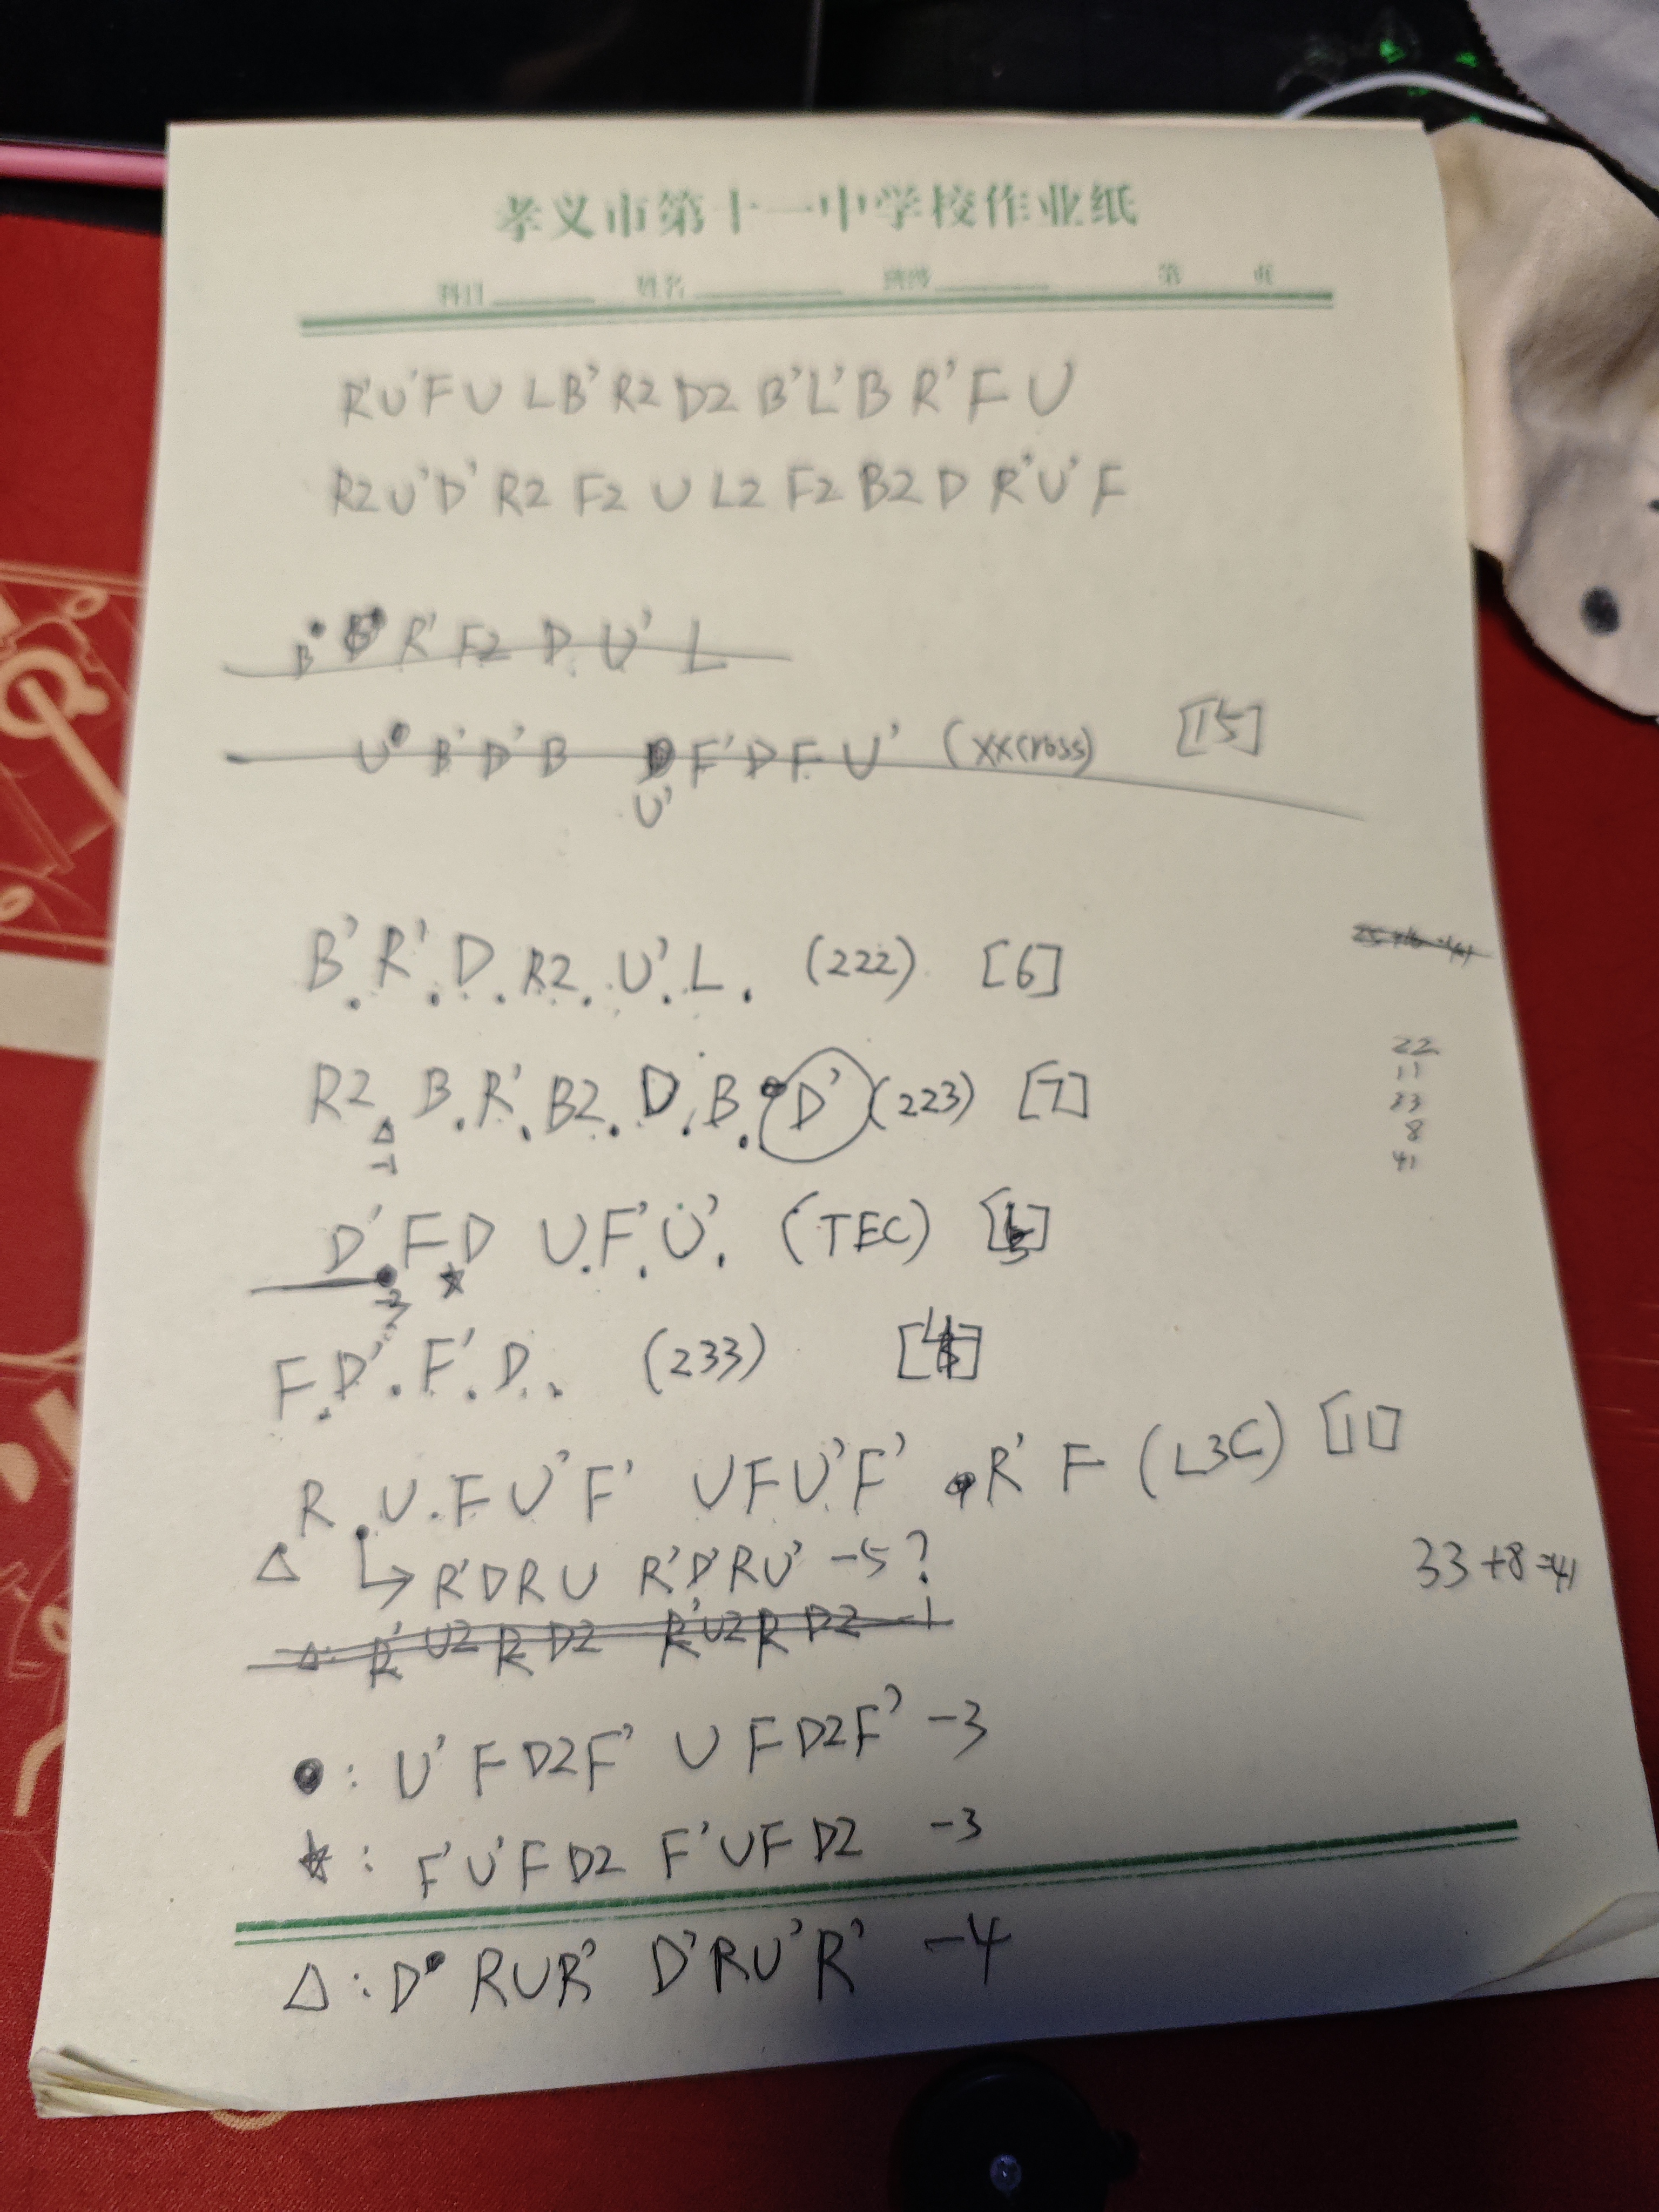 孝义市第十一中学校作业纸
科目 姓名 班级 第 页
R'U'F U L B' R2 D2 B'L'B R'F U
R2 U'D' R2 F2 U L2 F2 B2 D R'U'F
B' B' R' F2 D U' L
U B' D' B F' D F U' (xxcross) [15]
U'
B' R' D R2 U' L (222) [6]
22
11
33
8
41
R2 B R' B2 D B D' (223) [7]
△
-1
D' F D U F' U' (TEC)
☆
F D' F' D (233)
R U F U' F' U F U' F' R' F (L3C) [11]
△ ↳ R'DRU R'D'RU' -5?
33+8=41
△: R' U2 R D2 R' U2 R D2 -1
●: U' F D2 F' U F D2 F' -3
☆: F' U' F D2 F' U F D2 -3
△: D R U R' D' R U' R' -4